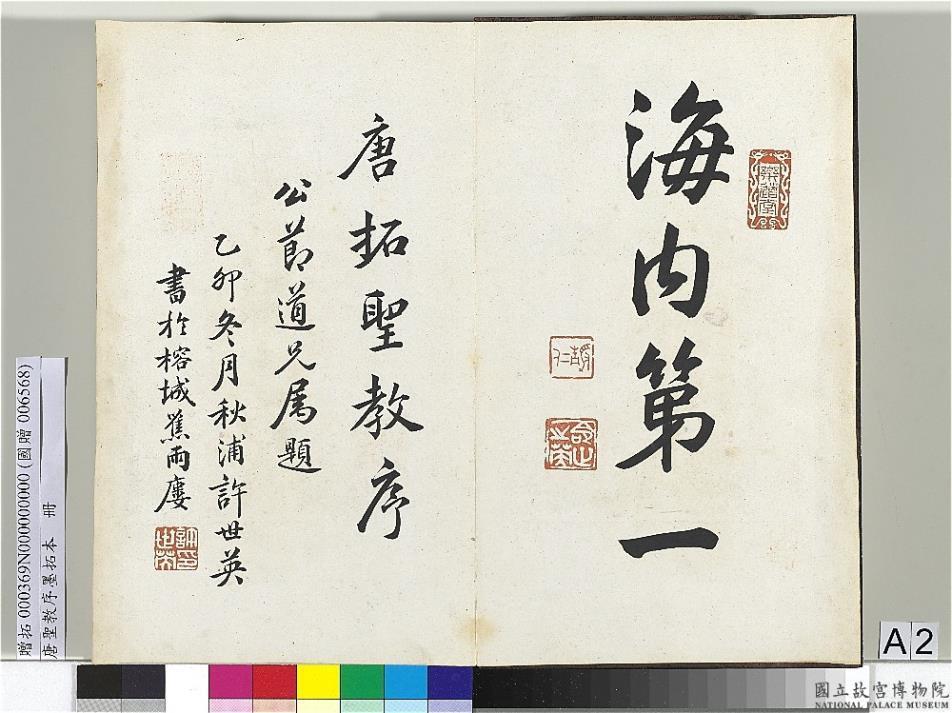 海內第一
唐拓聖教序
公節道兄屬題
乙卯冬月秋浦許世英
書於榕城蕉雨廔
許世英印
贈拓 000369N000000000 (國贈 006568)
唐聖教序墨拓本 冊
A2
國立故宮博物院
NATIONAL PALACE MUSEUM